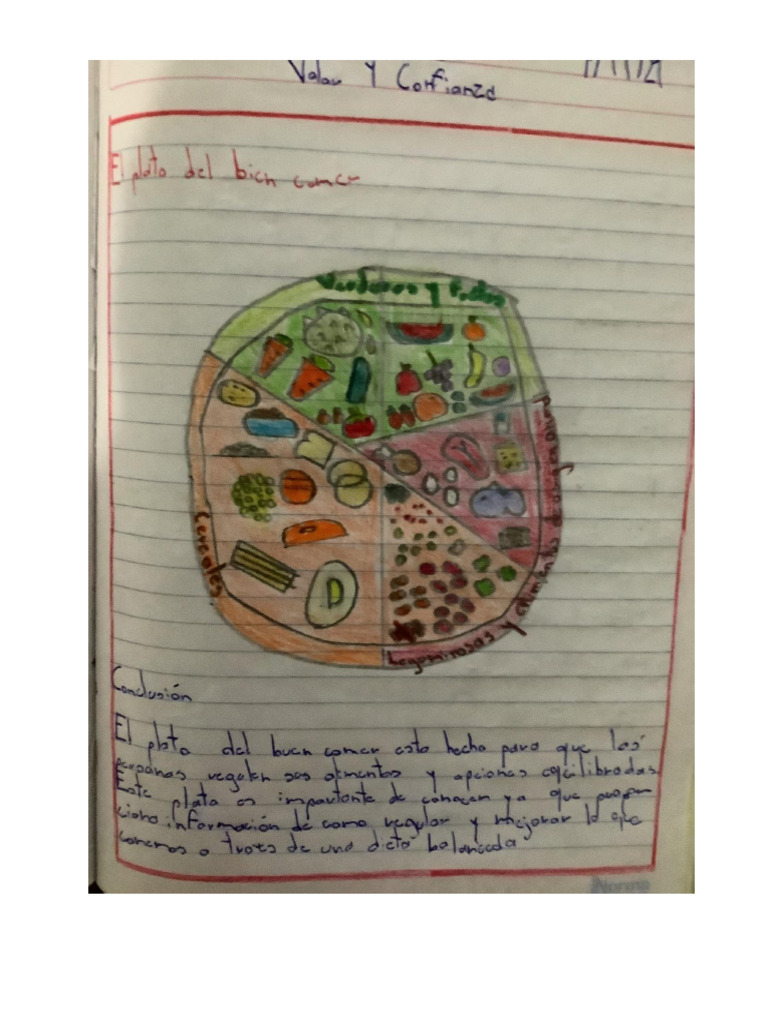 Valor Y Confianza
El plato del bien comer
Verduras y Frutas
Cereales
Leguminosas y alimentos de origen animal
Conclusión
El plato del buen comer esta hecho para que las
personas regulen sus alimentos y opciones equilibradas
Este plato es importante de conocer ya que propor
ciona información de como regular y mejorar lo que
comemos a traves de una dieta balanceada
Norma